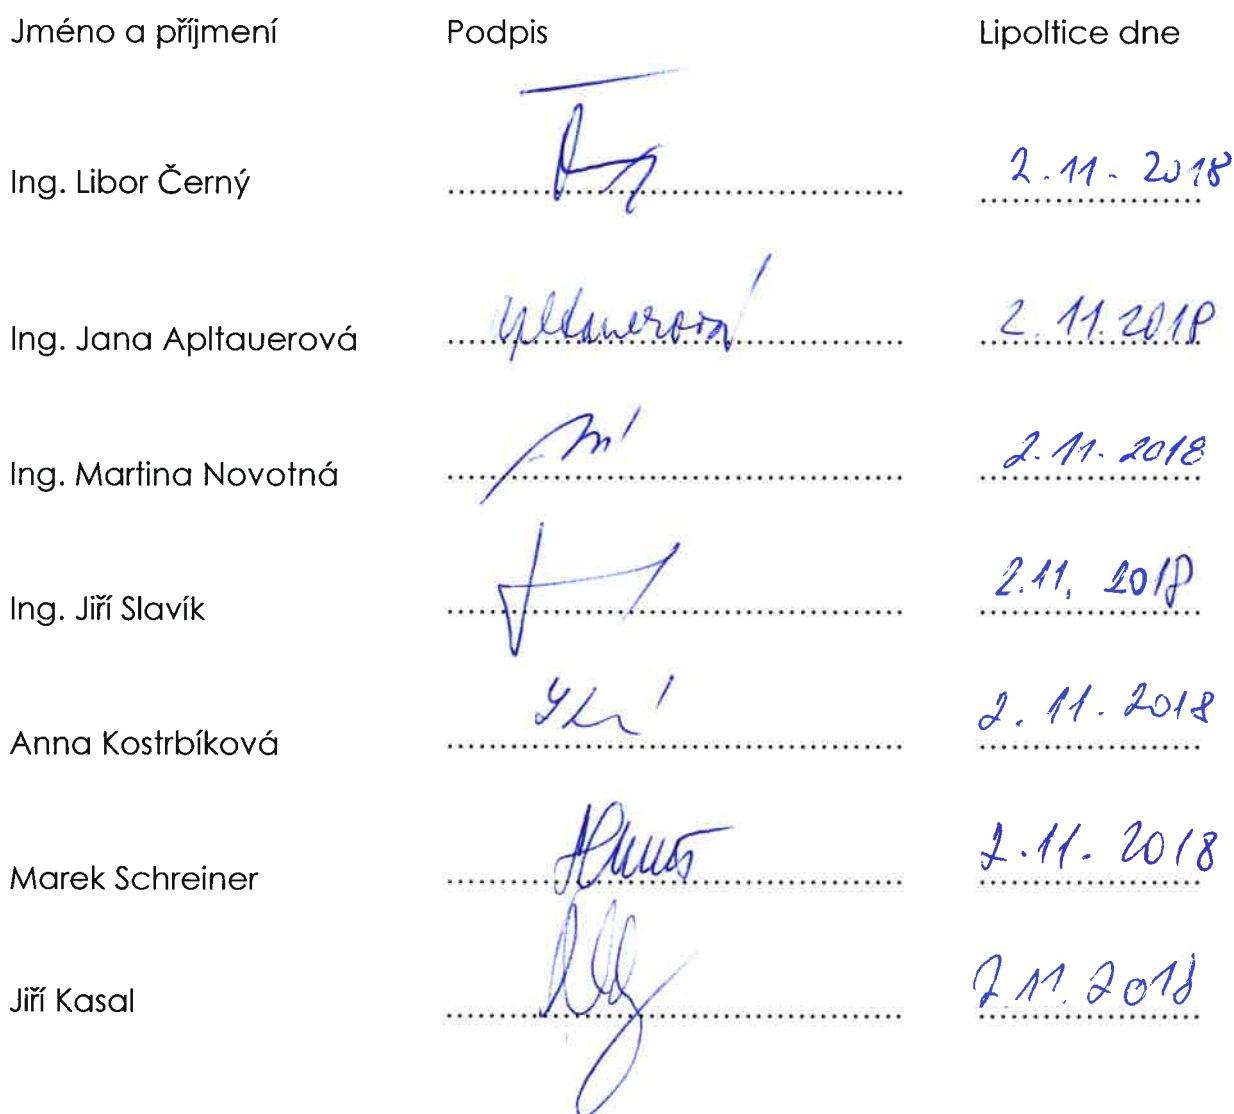 Jméno a příjmení Podpis Lipoltice dne
Ing. Libor Černý .......................................... 2.11.2018
Ing. Jana Apltauerová Apltauerová 2.11.2018
Ing. Martina Novotná .......................................... 2.11.2018
Ing. Jiří Slavík .......................................... 2.11.2018
Anna Kostrbíková .......................................... 2.11.2018
Marek Schreiner .......................................... 2.11.2018
Jiří Kasal .......................................... 2.11.2018